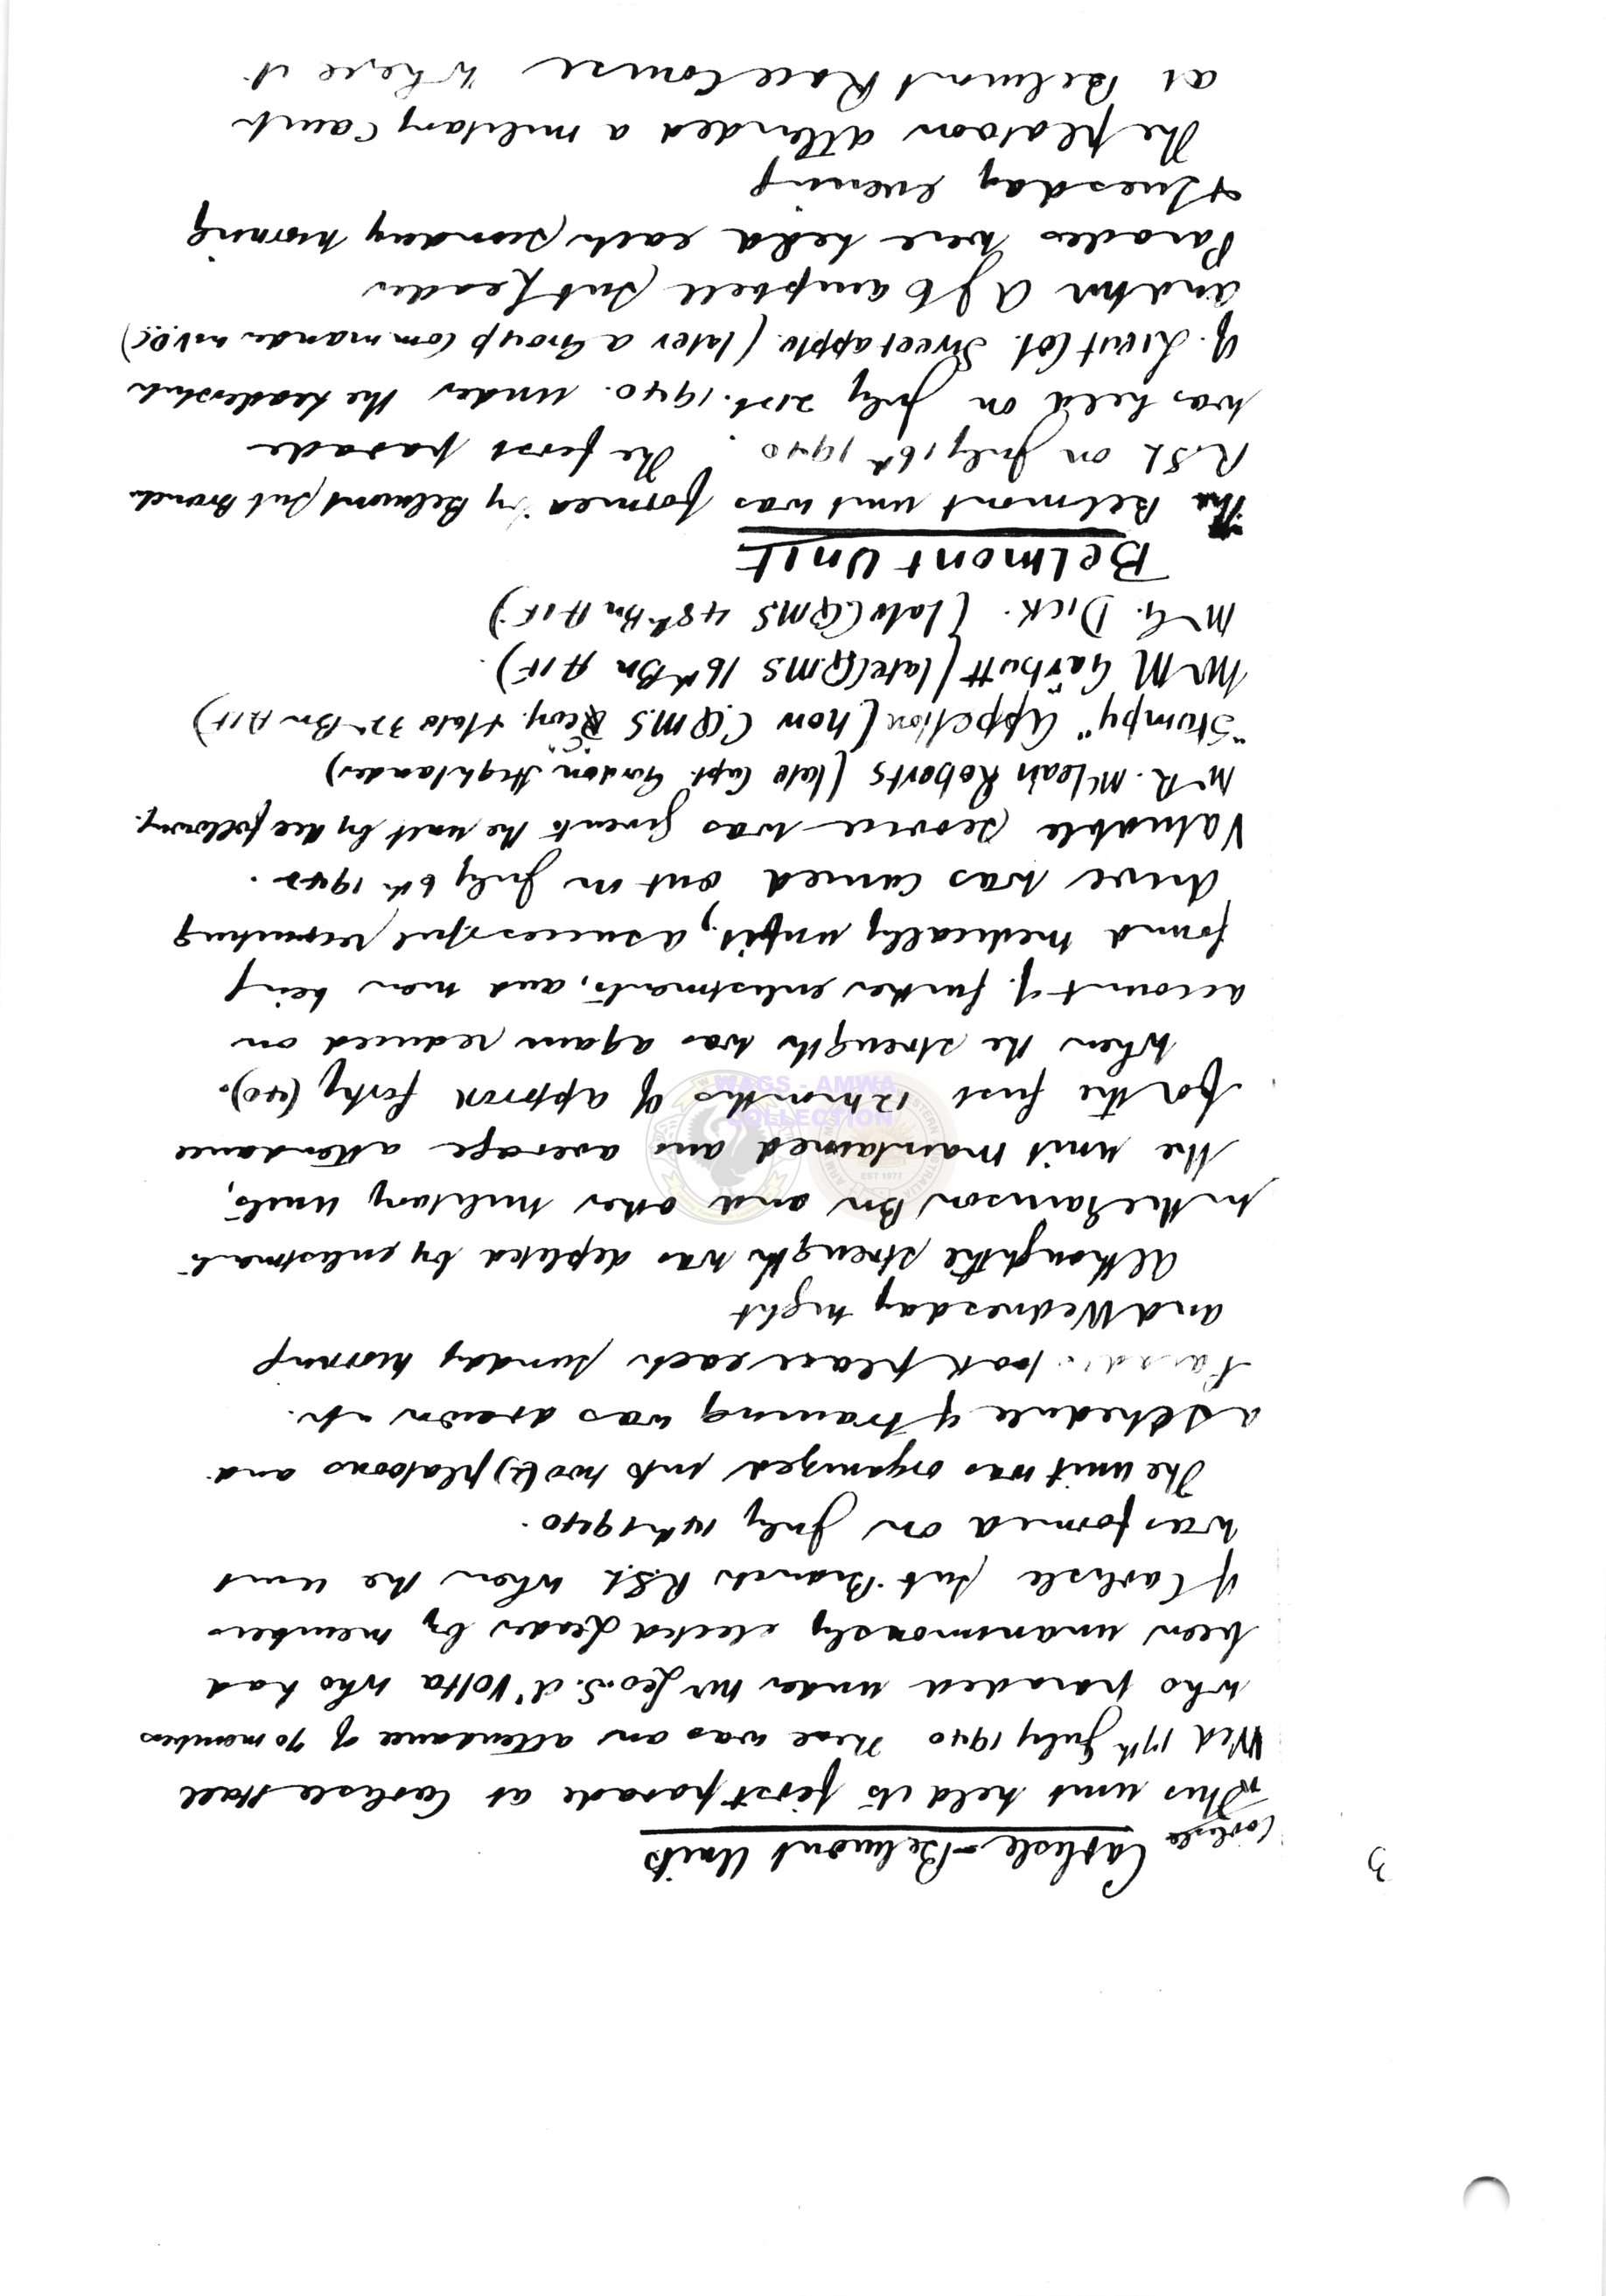 3
Carlisle - Belmont Units
Carlisle
This unit held its first parade at Carlisle Hall
Wed 17th July 1940 There was an attendance of 70 members
who paraded under Mr Geo. S. d'Volta who had
been unanimously elected Leader by members
of Carlisle Sub-Branch R.S.L when the unit
was formed on July 14th 1940.
The unit was organized into two (2) platoons and
a schedule of training was drawn up.
Parades took place each Sunday morning
and Wednesday night
Although the strength was depleted by enlistments
in the Garrison Bn and other military units,
the unit maintained an average attendance
for the first 12 months of approx forty (40).
When the strength was again reduced on
account of further enlistments, and men being
found medically unfit, a successful recruiting
drive was carried out on July 6th
Valuable service was given to the unit by the following.
Mr R. McLean Roberts (late Capt. Gordon Highlanders)
"Stumpy" (now C.Q.M.S "C" Coy. & late 32nd Bn AIF)
Mr M Garbutt (late CQMS 16th Bn AIF).
Mr G. Dick. (late CQMS 48th Bn AIF.)
Belmont Unit
The Belmont unit was formed by Belmont Sub Branch
R.S.L on July 16th 1940. The first parade
was held on July 21st. 1940. under the leadership
of. Lieut Col. Sweetapple (later a Group Commander VDC)
and Mr A J Campbell Sub Leader
Parades were held each Sunday morning
& Tuesday evening
The platoon attended a military camp
at Belmont Race Course where it
WAGS - AMWA
COLLECTION
EST 1977